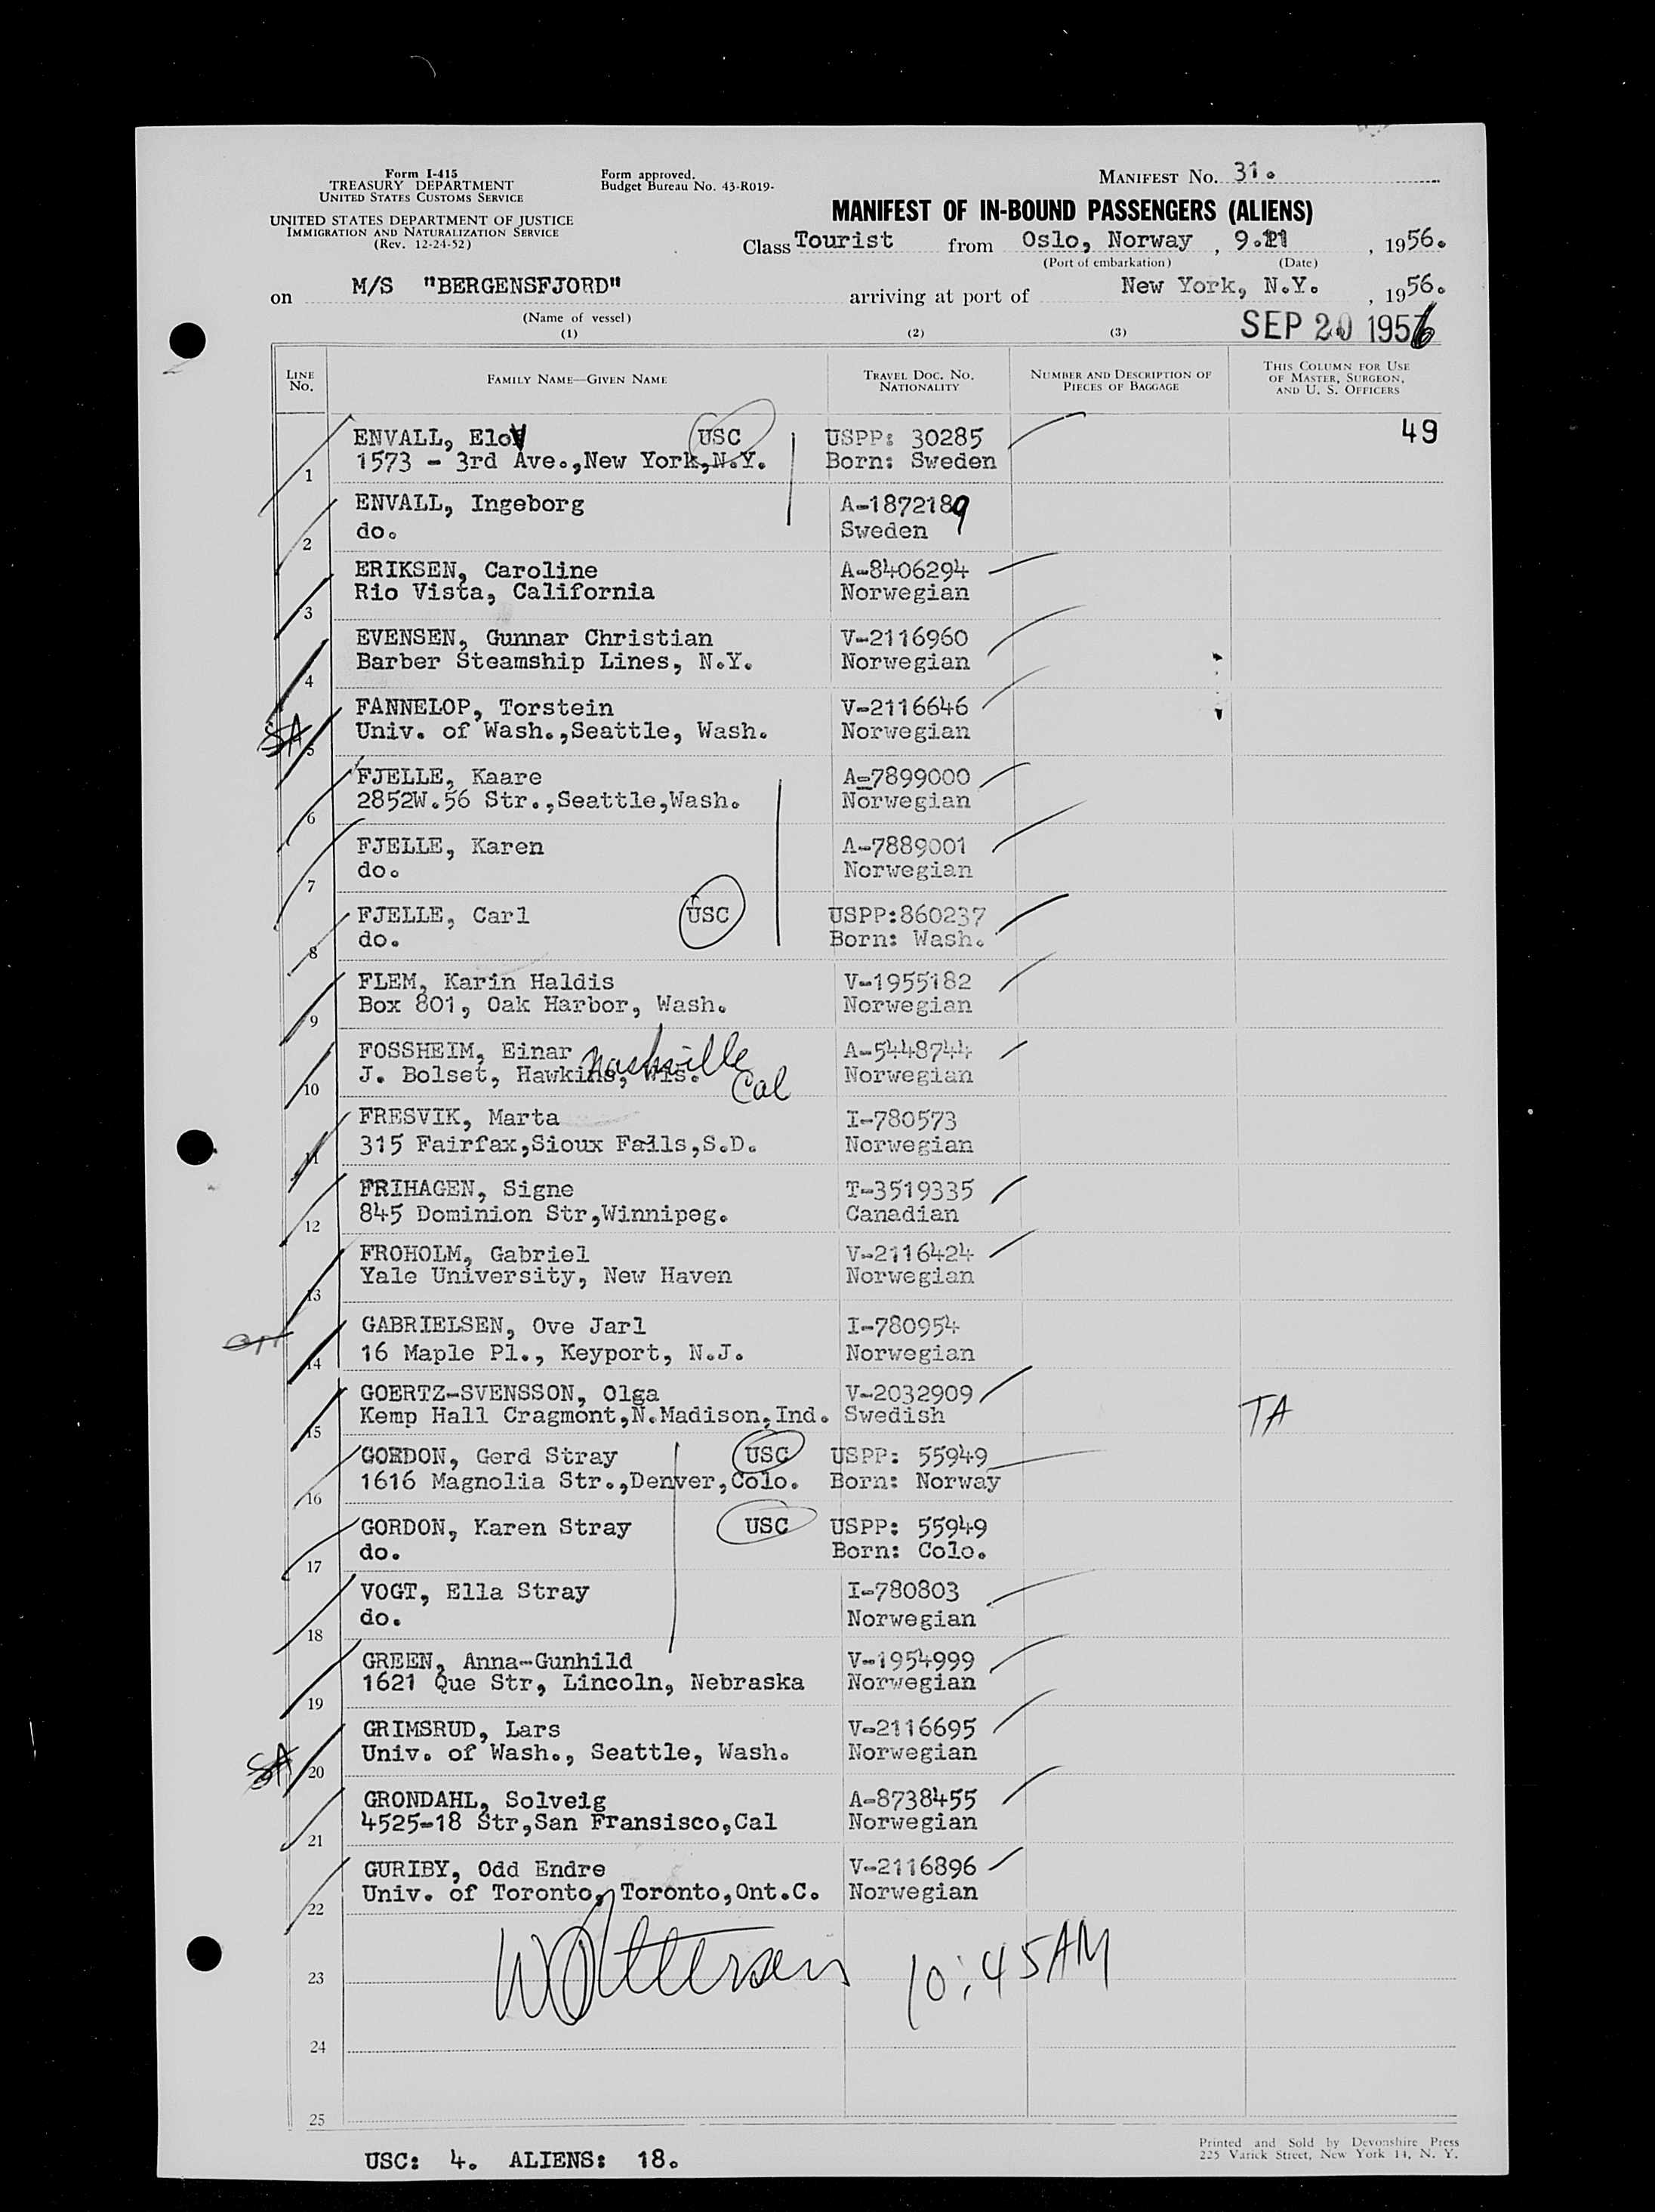 Form I-415
TREASURY DEPARTMENT
UNITED STATES CUSTOMS SERVICE
UNITED STATES DEPARTMENT OF JUSTICE
IMMIGRATION AND NATURALIZATION SERVICE
(Rev. 12-24-52)
Form approved.
Budget Bureau No. 43-R019-
MANIFEST NO. 31.
MANIFEST OF IN-BOUND PASSENGERS (ALIENS)
Class Tourist from Oslo, Norway, 9.11, 1956.
(Port of embarkation) (Date)
on M/S "BERGENSFJORD" arriving at port of New York, N.Y., 1956.
(Name of vessel)
SEP 20 1956
(1) (2) (3)
LINE NO. FAMILY NAME—GIVEN NAME TRAVEL DOC. NO. NATIONALITY NUMBER AND DESCRIPTION OF PIECES OF BAGGAGE THIS COLUMN FOR USE OF MASTER, SURGEON, AND U. S. OFFICERS
1 ENVALL, Elov USC USPP: 30285 49
1573 - 3rd Ave.,New York,N.Y. Born: Sweden
2 ENVALL, Ingeborg A-1872189
do. Sweden
3 ERIKSEN, Caroline A-8406294
Rio Vista, California Norwegian
4 EVENSEN, Gunnar Christian V-2116960
Barber Steamship Lines, N.Y. Norwegian
SA 5 FANNELOP, Torstein V-2116646
Univ. of Wash.,Seattle, Wash. Norwegian
6 FJELLE, Kaare A-7899000
2852W.56 Str.,Seattle,Wash. Norwegian
7 FJELLE, Karen A-7889001
do. Norwegian
8 FJELLE, Carl USC USPP:860237
do. Born: Wash.
9 FLEM, Karin Haldis V-1955182
Box 801, Oak Harbor, Wash. Norwegian
10 FOSSHEIM, Einar Nashville Cal A-5448744
J. Bolset, Hawkins, Wis. Norwegian
11 FRESVIK, Marta I-780573
315 Fairfax,Sioux Falls,S.D. Norwegian
12 FRIHAGEN, Signe T-3519335
845 Dominion Str,Winnipeg. Canadian
13 FROHOLM, Gabriel V-2116424
Yale University, New Haven Norwegian
14 GABRIELSEN, Ove Jarl I-780954
16 Maple Pl., Keyport, N.J. Norwegian
15 GOERTZ-SVENSSON, Olga V-2032909 TA
Kemp Hall Cragmont,N.Madison,Ind. Swedish
16 GORDON, Gerd Stray USC USPP: 55949
1616 Magnolia Str.,Denver,Colo. Born: Norway
17 GORDON, Karen Stray USC USPP: 55949
do. Born: Colo.
18 VOGT, Ella Stray I-780803
do. Norwegian
19 GREEN, Anna-Gunhild V-1954999
1621 Que Str, Lincoln, Nebraska Norwegian
SA 20 GRIMSRUD, Lars V-2116695
Univ. of Wash., Seattle, Wash. Norwegian
21 GRONDAHL, Solveig A-8738455
4525-18 Str,San Fransisco,Cal Norwegian
22 GURIBY, Odd Endre V-2116896
Univ. of Toronto, Toronto,Ont.C. Norwegian
23 10:45AM
24
25
USC: 4. ALIENS: 18.
Printed and Sold by Devonshire Press
225 Varick Street, New York 14, N. Y.